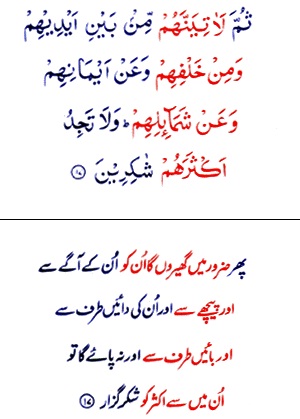 ثُمَّ لَاٰتِيَنَّهُمْ مِّنْۢ بَيْنِ اَيْدِيْهِمْ
وَمِنْ خَلْفِهِمْ وَعَنْ اَيْمَانِهِمْ
وَعَنْ شَمَآئِلِهِمْ ؕ وَلَا تَجِدُ
اَكْثَرَهُمْ شٰكِرِيْنَ ۱۷
پھر ضرور میں گھیروں گا اُن کو اُن کے آگے سے
اور پیچھے سے اور اُن کی دائیں طرف سے
اور بائیں طرف سے اور نہ پائے گا تو
اُن میں سے اکثر کو شکر گزار ۱۷